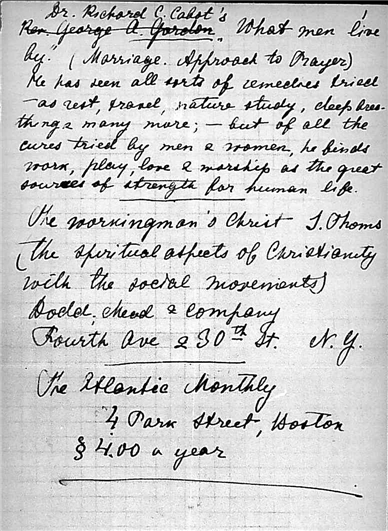 Dr. Richard C. Cabot's
Rev. George A. Gordon "What men live
by." (Marriage. Approach to Prayer)
He has seen all sorts of remedies tried
- as rest, travel, nature study, deep brea-
thing & many more; - but of all the
cures tried by men & women, he finds
work, play, love & worship as the great
sources of strength for human life.
The workingman's Christ J. Thoms
(the spiritual aspects of Christianity
with the social movements)
Dodd, Mead & Company
Fourth Ave & 30th St. N.Y.
The Atlantic Monthly
4 Park Street, Boston
$4.00 a year